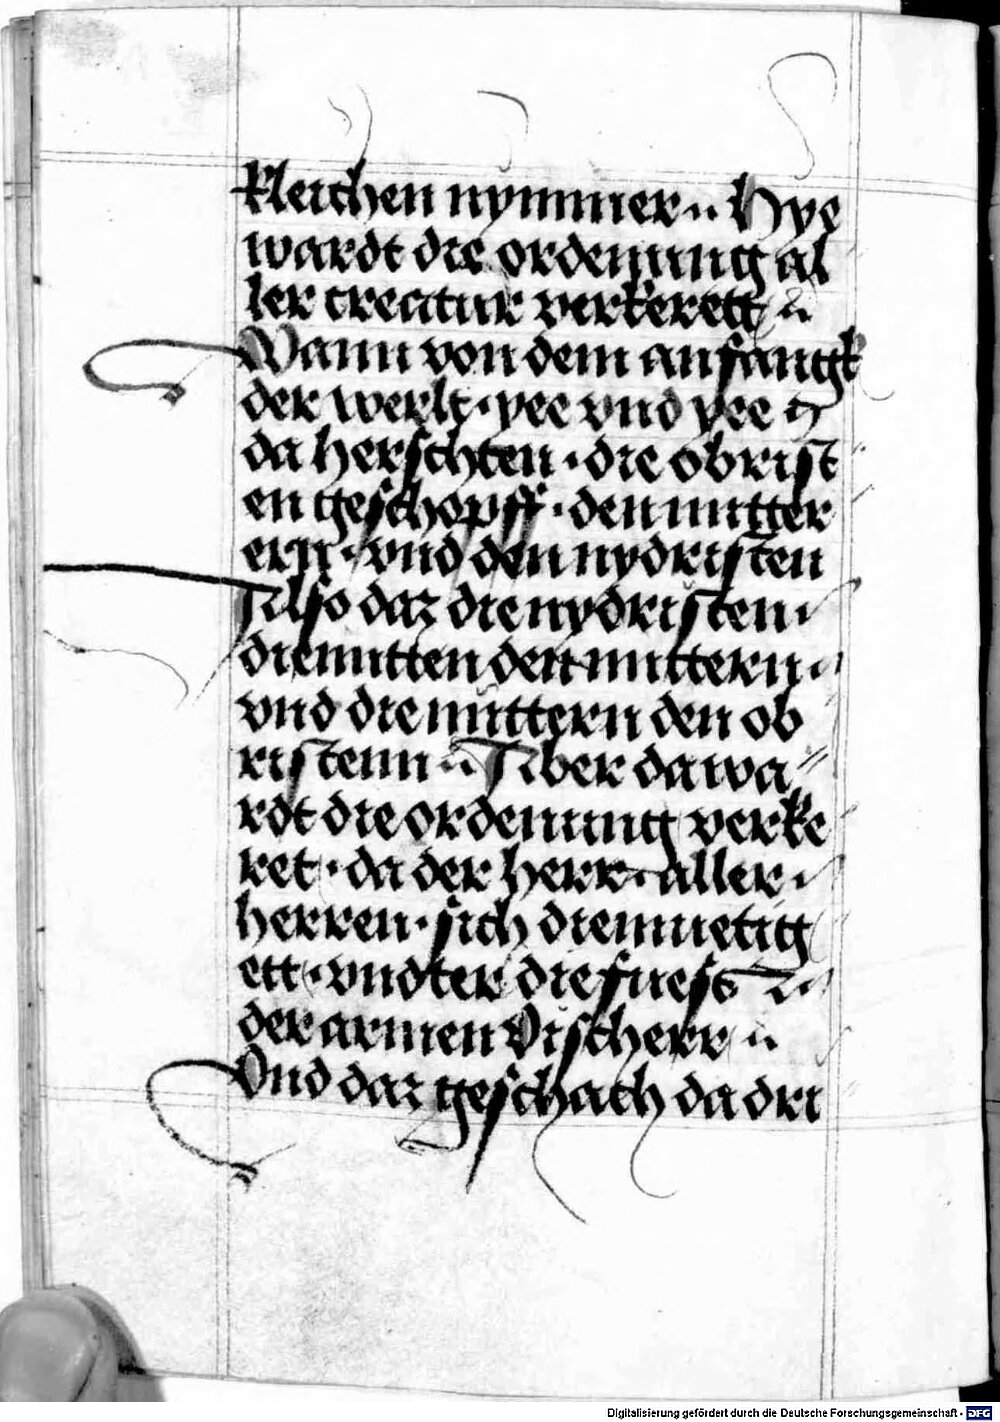 kleichen nymmer·:· Hye
wardt die ordenung al
ler creatur verkerett ·:·
Wann von dem anfangk
der werlt · yee vnd yee
da herschten · die obrist
en geschopff · den mitter
ern · vnd den nydristen
Also daz die nydristen ·
die mitten den mittern ·
vnd die mittern den ob
ristenn ·:· Aber da wa⸗
rdt die ordenung verke
ret · da der herr · aller ·
herren · sich diemuetig
ett · vndter die fuesz ·:·
der armen Vischerr ·:·
Vnd daz geschach da dri
Digitalisierung gefördert durch die Deutsche Forschungsgemeinschaft - DFG